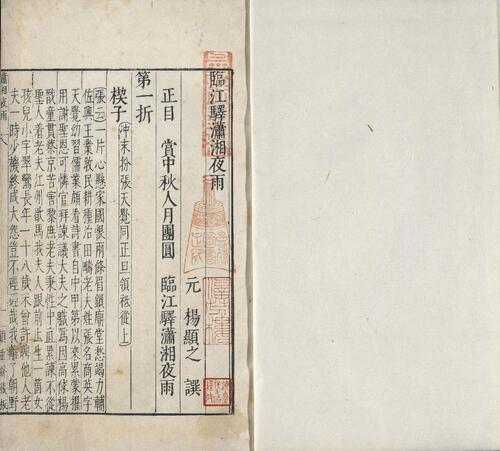 臨江驛瀟湘夜雨
元 楊顯之 撰
正目 賞中秋人月團圓 臨江驛瀟湘夜雨
第一折
楔子 冲末扮張天覺同正旦領祗從上
張云一片心懸家國恨兩條眉鎖廟堂愁竭力輔
佐興王業敦民耕種治田疇老夫姓張名商英字
天覺幼習儒業頗看詩書自中甲第以來累蒙擢
用謝聖恩可憐官拜諫議大夫之職爲因高俅楊
戩童貫蔡京苦害黎庶老夫秉性中直累諫不從
聖人着老夫江州歇馬我夫人跟前止生一箇女
孩兒小字翠鸞長年一十八歲不曾許聘他人老
夫一時少機終成大怨豈不
瀟湘夜雨